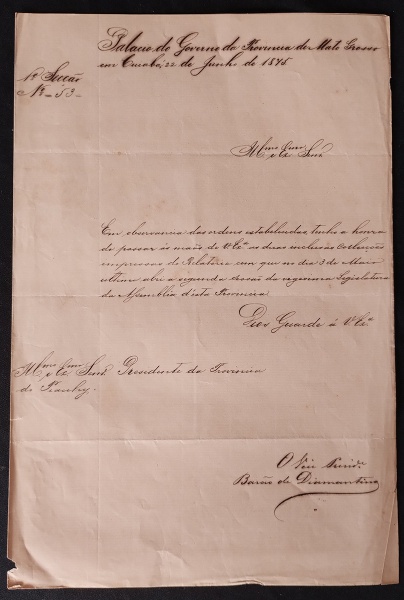 Palacio do Governo da Provincia de Mato Grosso
em Cuiabá, 22 de Junho de 1875
1ª Secção
Nº 53
Illmo e Exmo Senr
Em observancia das ordens estabelecidas, tenho a honra
de passar ás mãos de V. Exª os dous inclusos exemplares
impressos do Relatorio com que no dia 3 de Maio
ultimo abri a segunda sessão da vigesima Legislatura
da Assemblea desta Provincia.
Deos Guarde á V. Exª
Illmo e Exmo Senr Presidente da Provincia
do Piauhy.
O Vice Presidᵉ
Barão de Diamantino